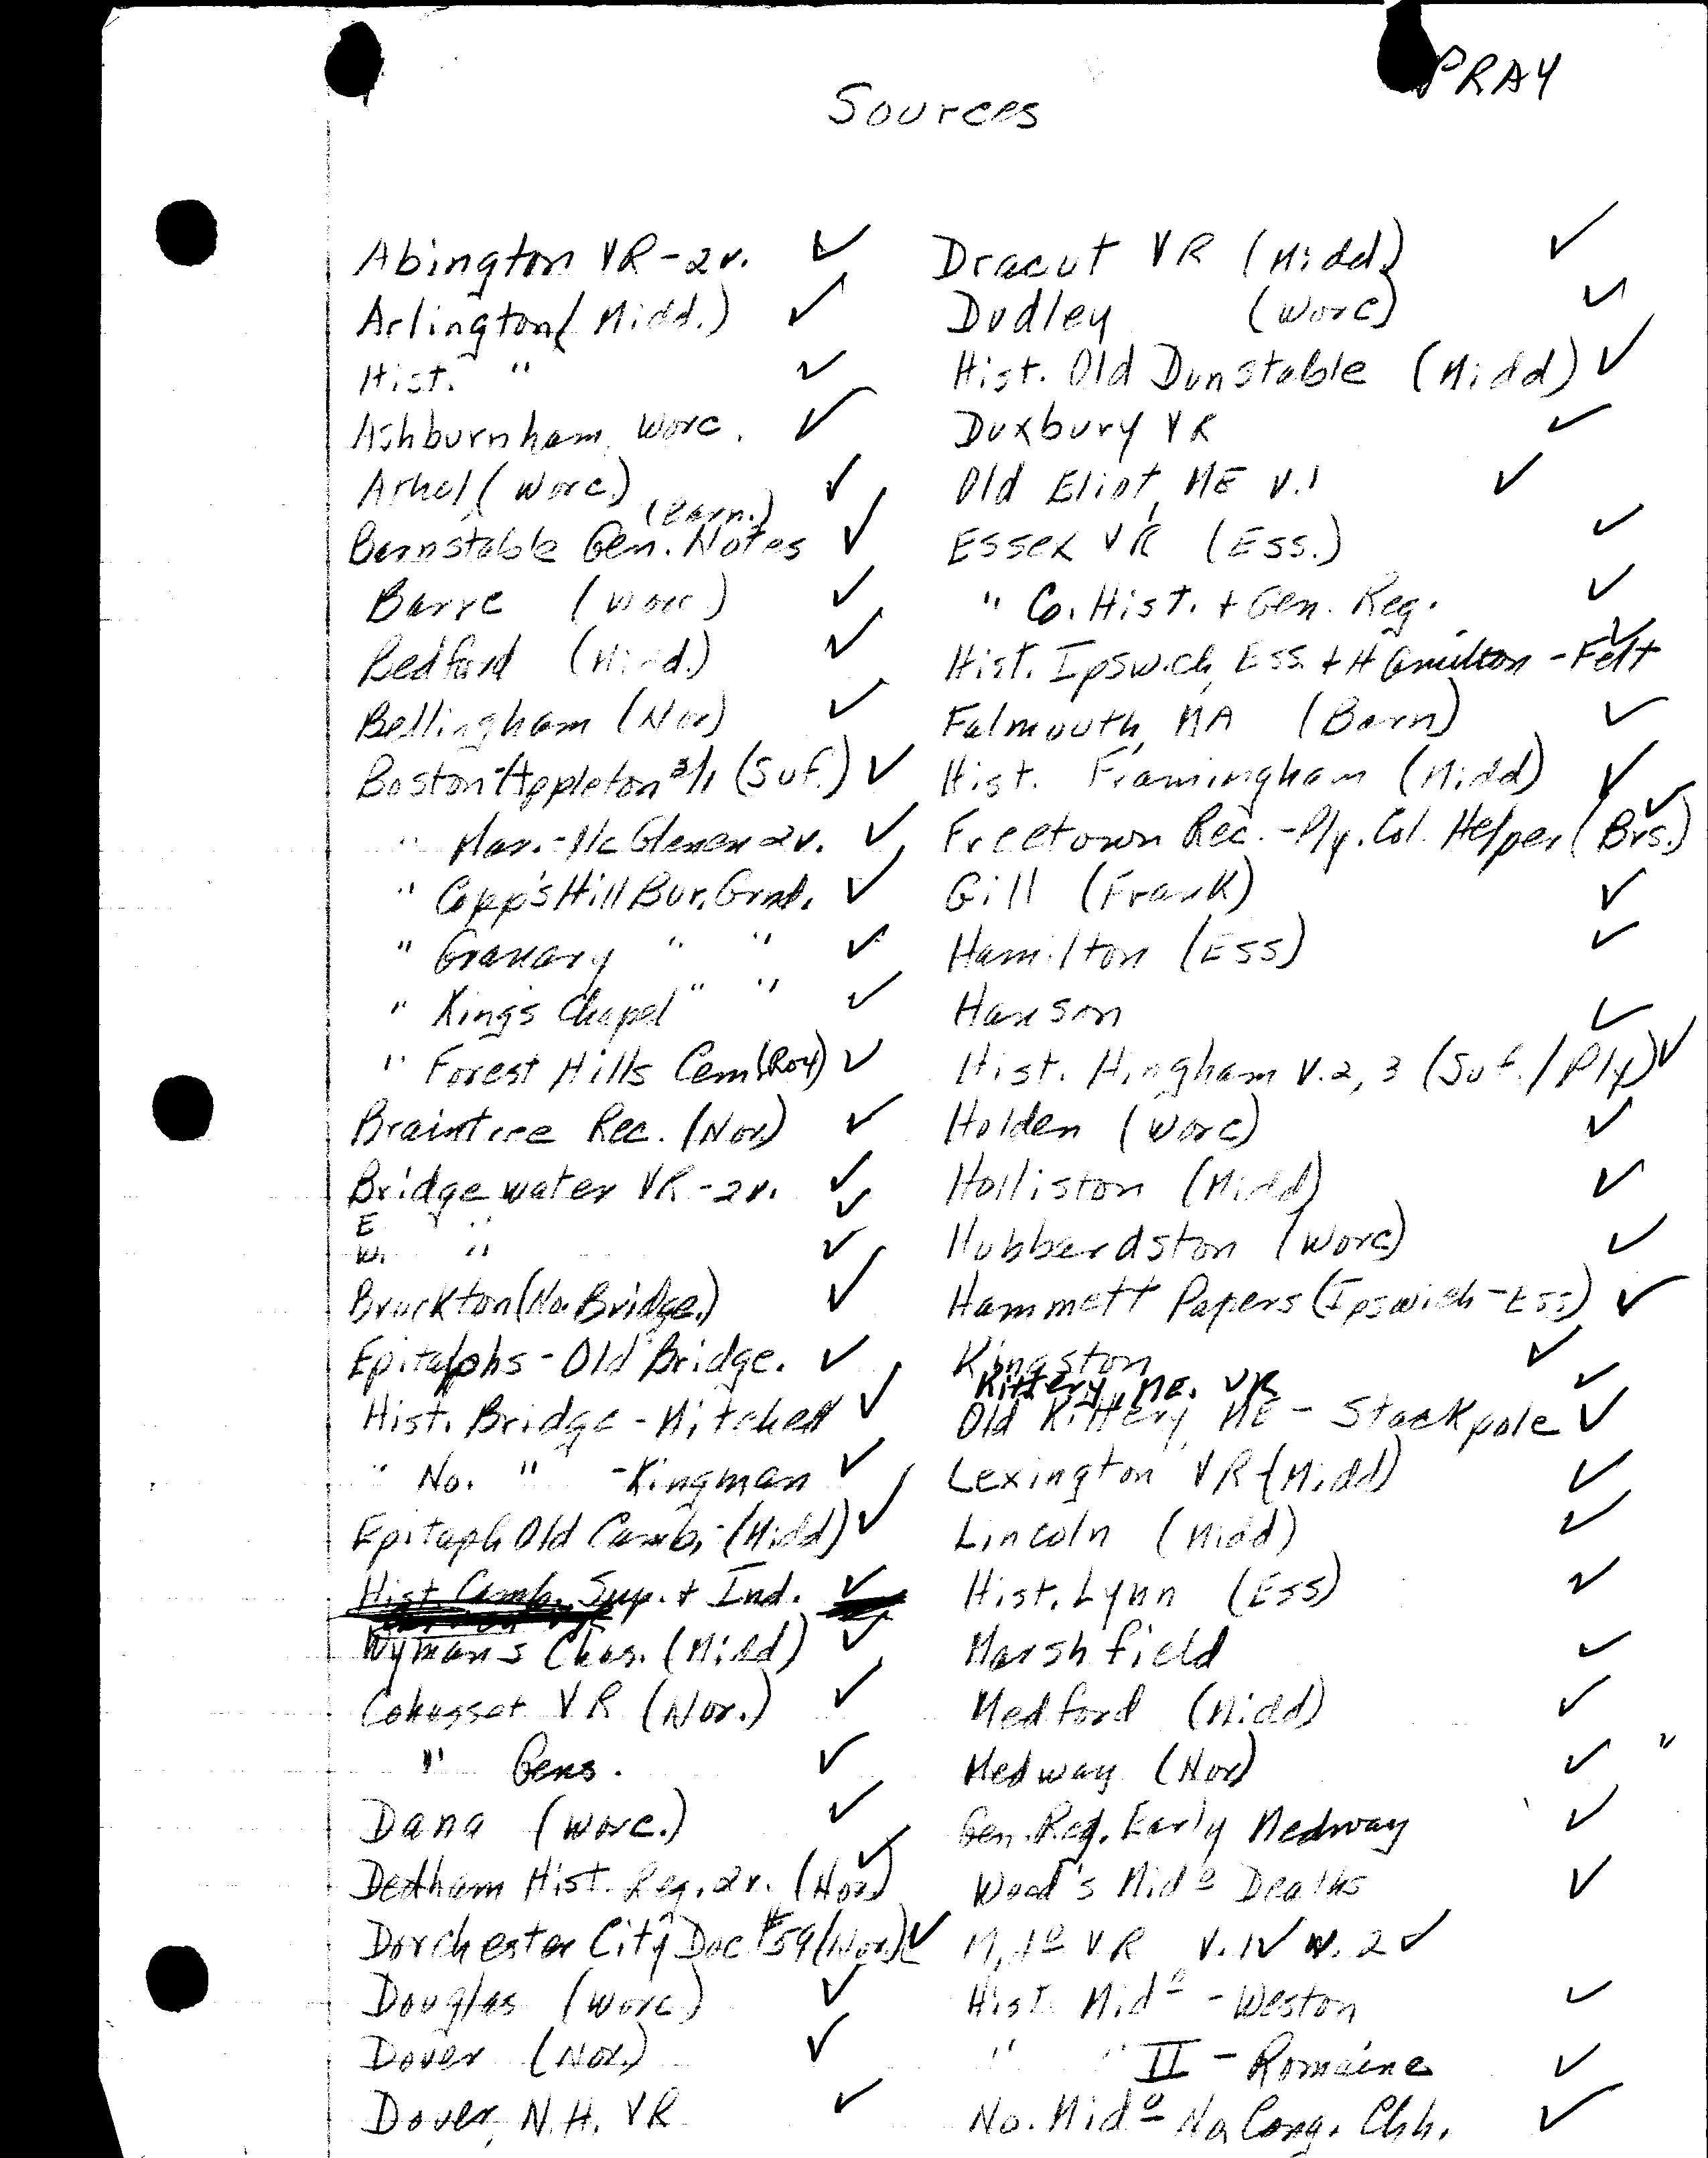 PRAY
Sources
Abington VR - 2v. ✓
Arlington (Midd.) ✓
Hist. " ✓
Ashburnham, Worc. ✓
Athol (Worc.) ✓
(Barn.)
Barnstable Gen. Notes ✓
Barre (Worc) ✓
Bedford (Midd.) ✓
Bellingham (Nor) ✓
Boston - Appleton (Suf.) ✓
" Mar. - McGlenen 2v. ✓
" Copp's Hill Bur. Grnd. ✓
" Granary " " ✓
" King's Chapel " " ✓
" Forest Hills Cem. (Rox) ✓
Braintree Rec. (Nor.) ✓
Bridgewater VR - 2v. ✓
E " ✓
W. " ✓
Brockton (No. Bridge.) ✓
Epitalphs - Old Bridge. ✓
Hist. Bridge - Mitchell ✓
" No. " - Kingman ✓
Epitaph Old Camb. - (Midd) ✓
Hist. Camb. Sup. + Ind. ✓
Wyman's Chas. (Midd) ✓
Cohasset VR (Nor.) ✓
" Gens. ✓
Dana (Worc.) ✓
Dedham Hist. Reg. 2v. (Nor) ✓
Dorchester City Doc #59 (Nor.) ✓
Douglas (Worc.) ✓
Dover (Nor.) ✓
Dover, N.H. VR ✓
Dracut VR (Midd) ✓
Dudley (Worc) ✓
Hist. Old Dunstable (Midd) ✓
Duxbury VR ✓
Old Eliot, ME v.1 ✓
Essex VR (Ess.) ✓
" Co. Hist. + Gen. Reg. ✓
Hist. Ipswich, Ess. + Hamilton - Felt ✓
Falmouth, MA (Barn) ✓
Hist. Framingham (Midd) ✓
Freetown Rec. - Ply. Col. Helper (Brs.) ✓
Gill (Frank) ✓
Hamilton (Ess) ✓
Hanson ✓
Hist. Hingham v. 2, 3 (Suf. / Ply) ✓
Holden (Worc) ✓
Holliston (Midd) ✓
Hubbardston (Worc) ✓
Hammett Papers (Ipswich - Ess) ✓
Kingston ✓
Kittery, ME. VR ✓
Old Kittery, ME - Stackpole ✓
Lexington VR (Midd) ✓
Lincoln (Midd) ✓
Hist. Lynn (Ess) ✓
Marshfield ✓
Medford (Midd) ✓
Medway (Nor) ✓ "
Gen. Reg. Early Medway ✓
Wood's Mid<sup>o</sup> Deaths ✓
Mid<sup>o</sup> VR v. 1 ✓ v. 2 ✓
Hist. Mid<sup>o</sup> - Weston ✓
" " II - Romaine ✓
No. Mid<sup>o</sup> No. Cong. Chh. ✓